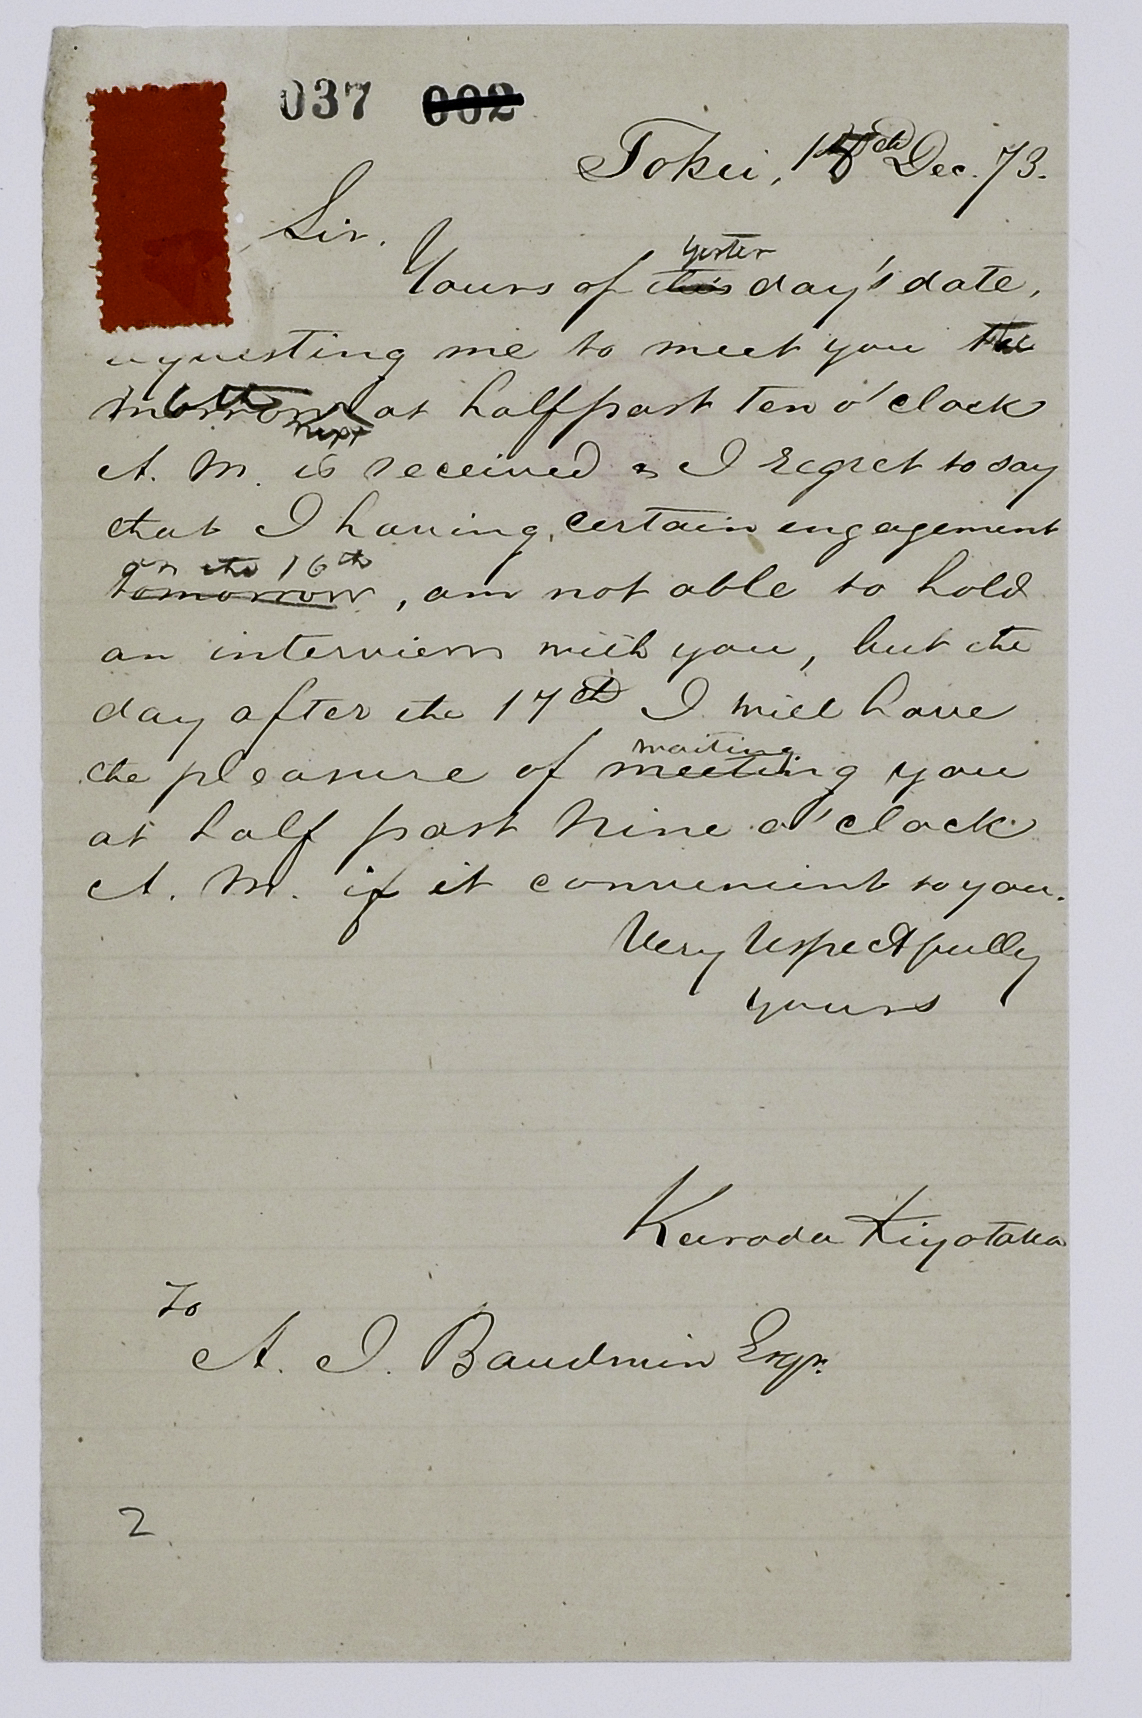 037 002
Tokei, 15th Dec. 73.
Sir.
yester
Yours of this day's date,
requesting me to meet you the
morrow at half past ten o'clock
next
A. M. is received & I regret to say
that I having, certain engagement
on the 16th
tomorrow, am not able to hold
an interview with you, but the
day after the 17th I will have
waiting
the pleasure of meeting you
at half past Nine o'clock
A. M. if it convenient to you.
Very respectfully
yours
Kuroda Kiyotaka
To
A. J. Baudwin Esqr.
2